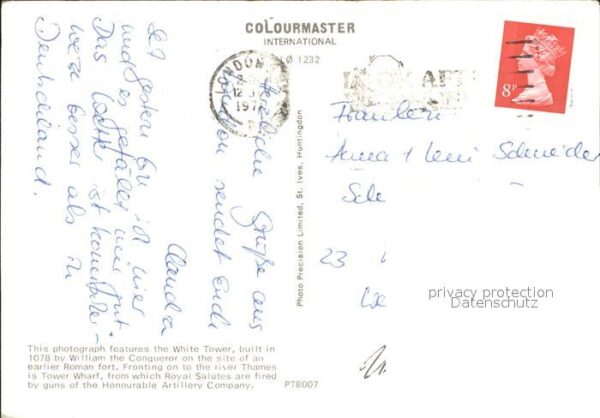 COLOURMASTER
INTERNATIONAL
1232
LONDON
8P
Herzliche Grüße aus
London sendet Euch
Claudia
Seit gestern bin ich hier
und es gefällt mir gut.
Das Wetter ist
weit besser als in
Deutschland.
Photo Precision Limited, St. Ives, Huntingdon
Fräulein
Anna + Leni Schneider
Sch
23
privacy protection
Datenschutz
This photograph features the White Tower, built in
1078 by William the Conqueror on the site of an
earlier Roman fort. Fronting on to the river Thames
is Tower Wharf, from which Royal Salutes are fired
by guns of the Honourable Artillery Company.
PT8007